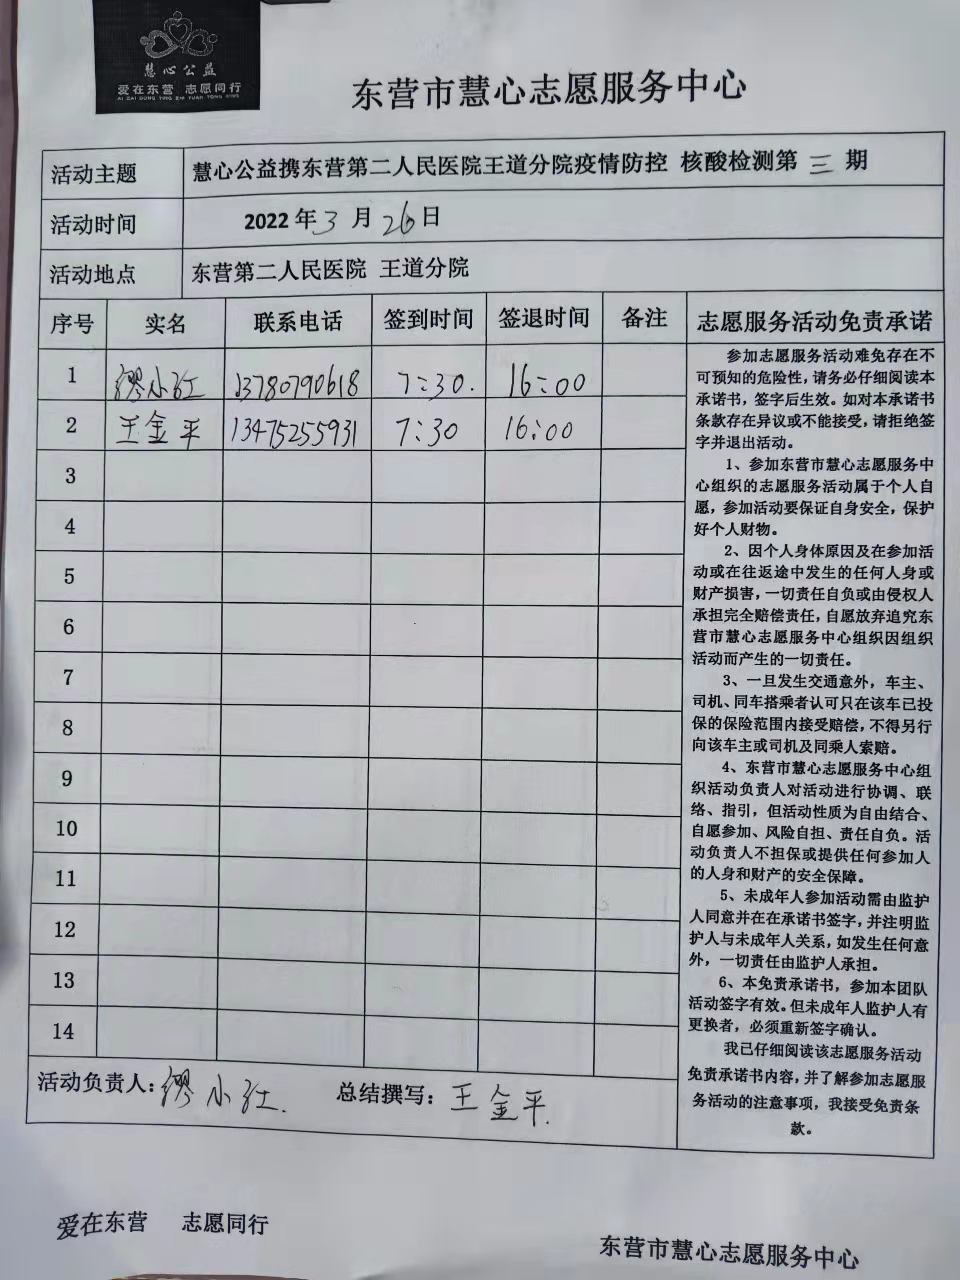 慧心公益
爱在东营 志愿同行
AI ZAI DONG YING ZHI YUAN TONG XING
东营市慧心志愿服务中心
活动主题 慧心公益携东营第二人民医院王道分院疫情防控 核酸检测第三期
活动时间 2022年3月26日
活动地点 东营第二人民医院 王道分院
序号 实名 联系电话 签到时间 签退时间 备注
1 缪小红 13780790618 7:30. 16:00
2 王金平 13475255931 7:30 16:00
3
4
5
6
7
8
9
10
11
12
13
14
志愿服务活动免责承诺
参加志愿服务活动难免存在不
可预知的危险性，请务必仔细阅读本
承诺书，签字后生效。如对本承诺书
条款存在异议或不能接受，请拒绝签
字并退出活动。
1、参加东营市慧心志愿服务中
心组织的志愿服务活动属于个人自
愿，参加活动要保证自身安全，保护
好个人财物。
2、因个人身体原因及在参加活
动或在往返途中发生的任何人身或
财产损害，一切责任自负或由侵权人
承担完全赔偿责任，自愿放弃追究东
营市慧心志愿服务中心组织因组织
活动而产生的一切责任。
3、一旦发生交通意外，车主、
司机、同车搭乘者认可只在该车已投
保的保险范围内接受赔偿，不得另行
向该车主或司机及同乘人索赔。
4、东营市慧心志愿服务中心组
织活动负责人对活动进行协调、联
络、指引，但活动性质为自由结合、
自愿参加、风险自担、责任自负。活
动负责人不担保或提供任何参加人
的人身和财产的安全保障。
5、未成年人参加活动需由监护
人同意并在在承诺书签字，并注明监
护人与未成年人关系，如发生任何意
外，一切责任由监护人承担。
6、本免责承诺书，参加本团队
活动签字有效。但未成年人监护人有
更换者，必须重新签字确认。
我已仔细阅读该志愿服务活动
免责承诺书内容，并了解参加志愿服
务活动的注意事项，我接受免责条
款。
活动负责人：缪小红. 总结撰写：王金平.
爱在东营 志愿同行
东营市慧心志愿服务中心